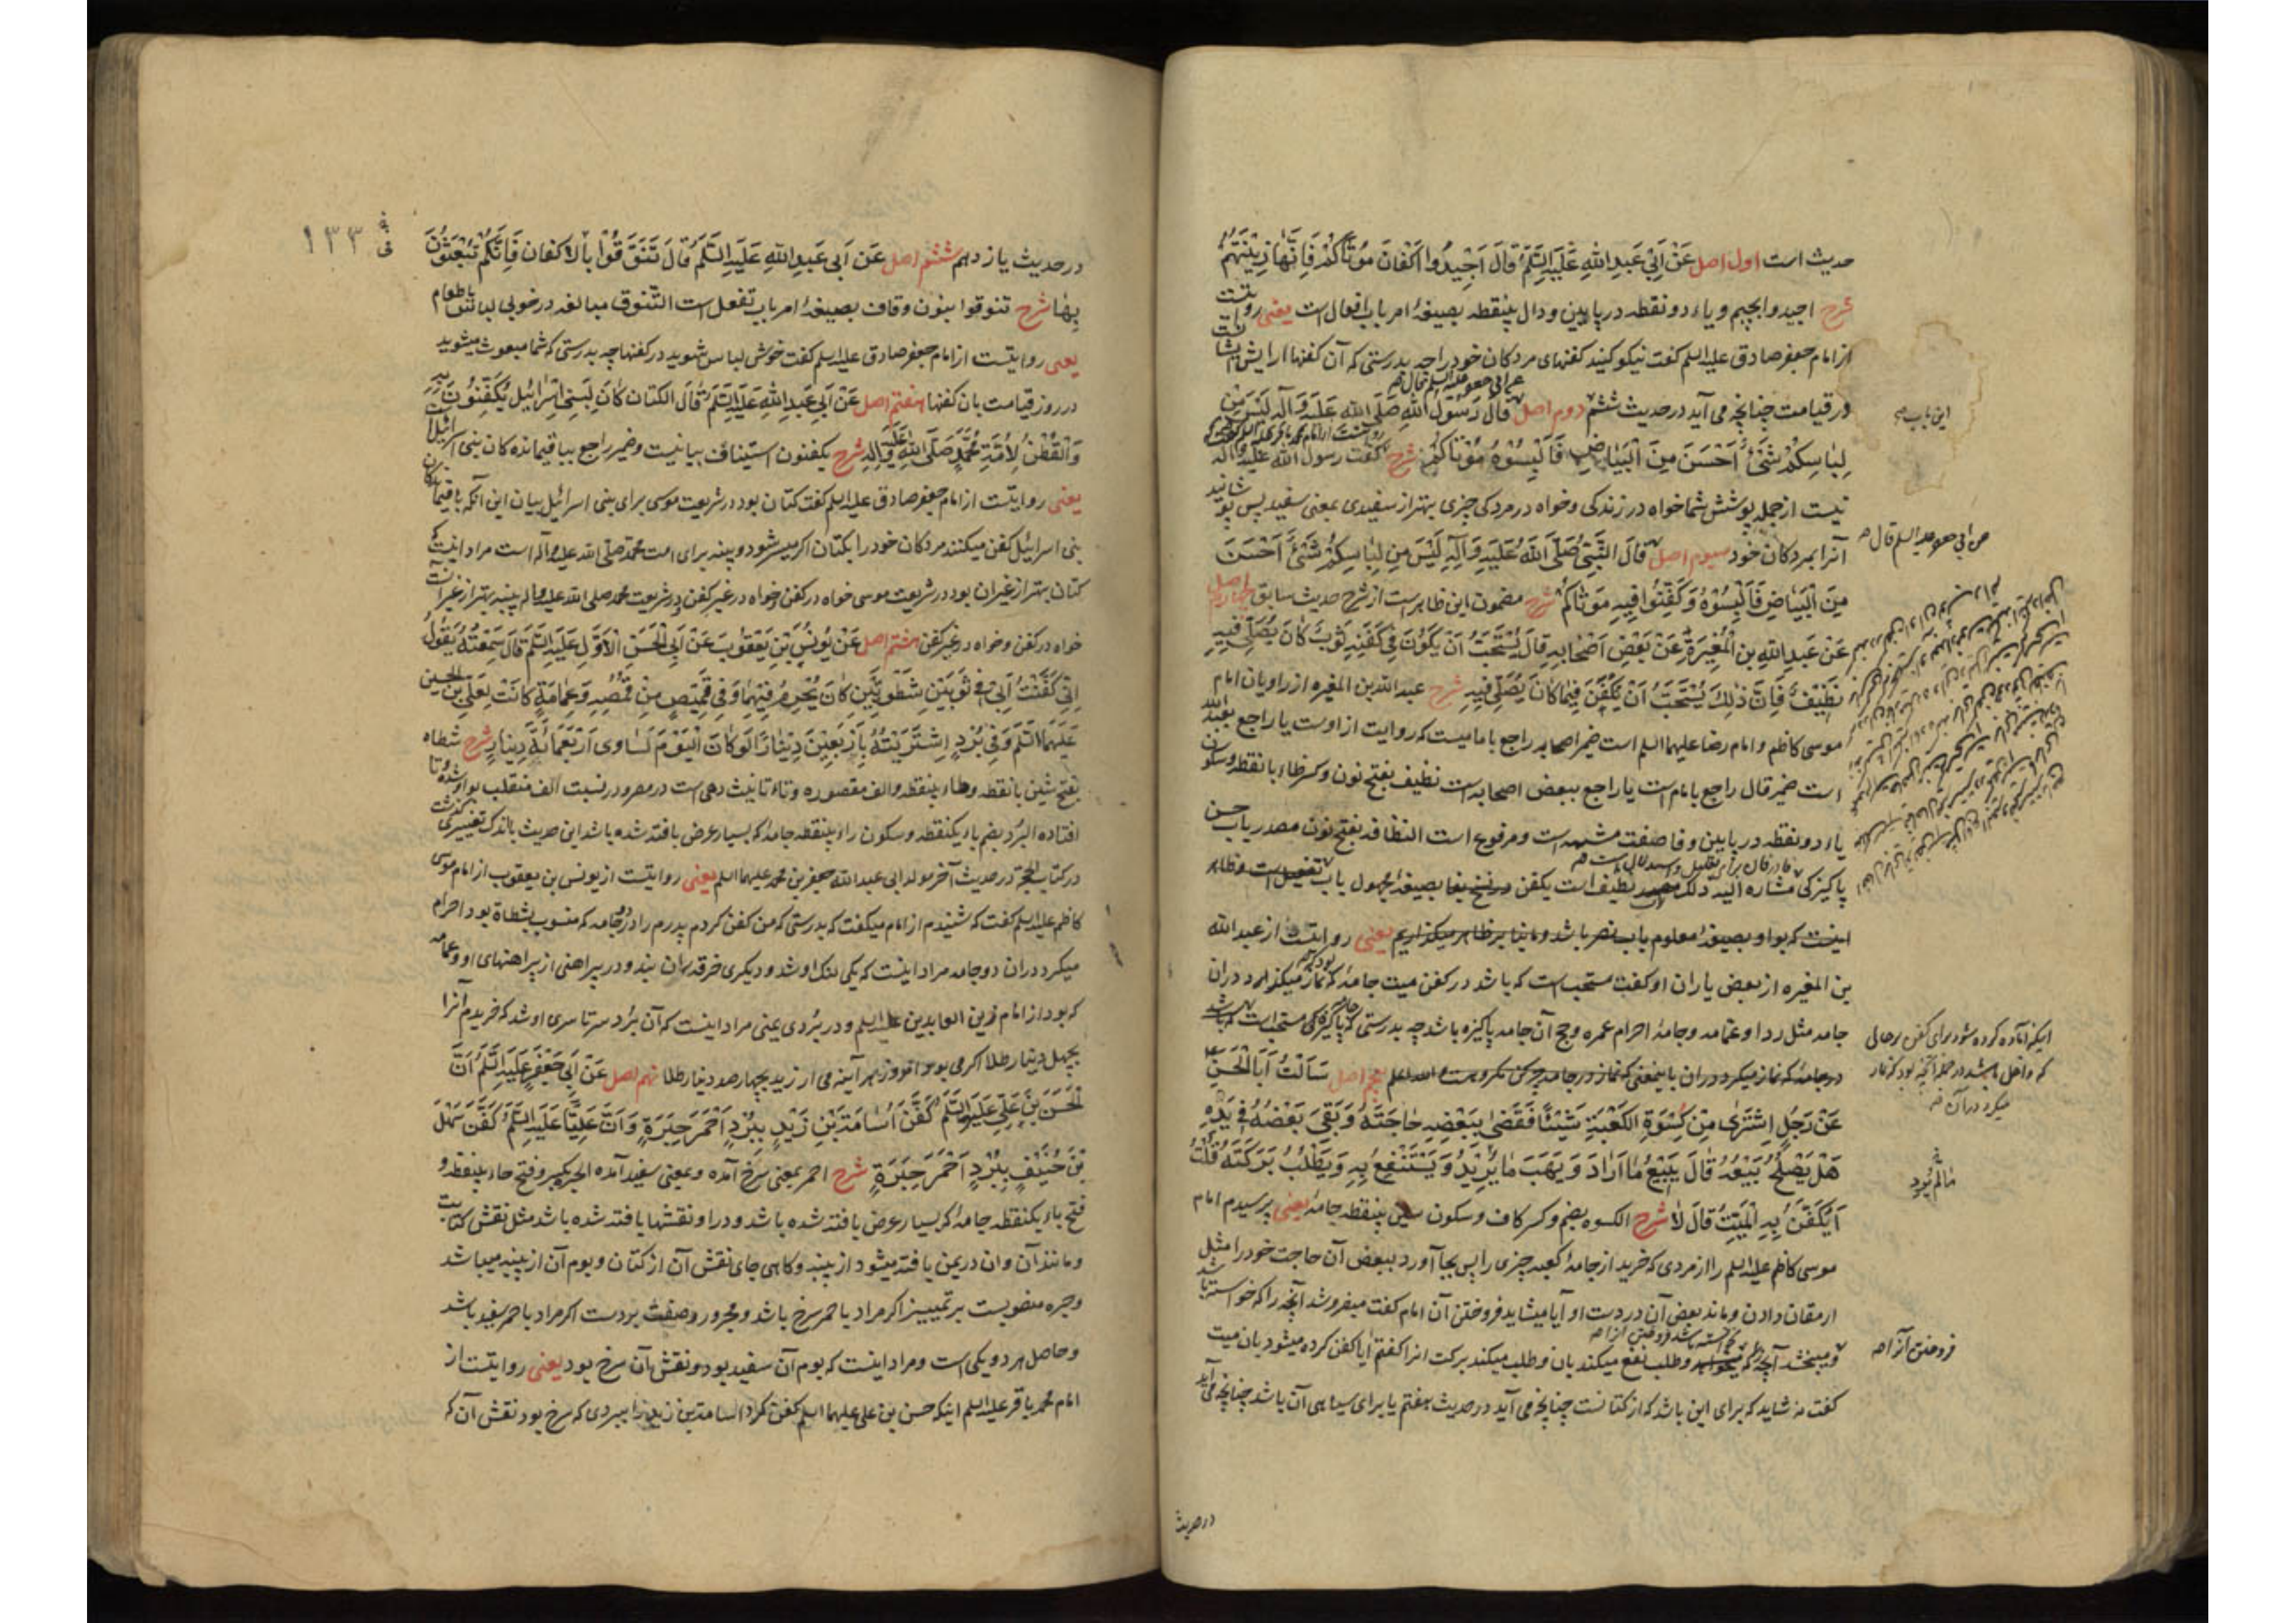 حدیث است اول اصل عَنْ اَبِیْ عَبْدِ اللّٰهِ عَلَیْهِ السَّلَمُ قَالَ اَجِیْدُوا اَکْفَانَ مَوْتَاکُمْ فَاِنَّهَا زِیْنَتُهُمْ
شرح اجیدوا بجیم و یاء دو نقطه در پایین و دال بینقطه بصیغهٔ امر باب افعال است یعنی روایتست
از امام جعفر صادق علیه السلم کفت نیکو کنید کفنهای مردکان خود را چه بدرستی که آن کفنها ارایش ایشانست
در قیامت چنانچه می آید در حدیث ششم دوم اصل قَالَ رَسُوْلُ اللّٰهِ صَلَّی اللّٰهُ عَلَیْهِ وَآلِهِ لَیْسَ مِنْ
لِبَاسِکُمْ شَیْءٌ اَحْسَنَ مِنَ الْبَیَاضِ فَاَلْبِسُوْهُ مَوْتَاکُمْ شرح کفت رسول الله علیه واله
نیست از جمله پوشش شما خواه در زندکی و خواه در مردکی چیزی بهتر از سفیدی بمعنی سفید پس بپوشانید
آنرا بمردکان خود سیوم اصل قَالَ النَّبِیُّ صَلَّی اللّٰهُ عَلَیْهِ وَآلِهِ لَیْسَ مِنْ لِبَاسِکُمْ شَیْءٌ اَحْسَنَ
مِنَ الْبَیَاضِ فَاَلْبِسُوْهُ وَکَفِّنُوا فِیْهِ مَوْتَاکُمْ شرح مضمون این ظاهر است از شرح حدیث سابق چهارم اصل
عَنْ عَبْدِ اللّٰهِ بْنِ الْمُغِیْرَةِ عَنْ بَعْضِ اَصْحَابِهِ قَالَ یُسْتَحَبُّ اَنْ یَکُوْنَ فِیْ کَفَنِهِ ثَوْبٌ کَانَ یُصَلِّیْ فِیْهِ
نَظِیْفٌ فَاِنَّ ذٰلِکَ یُسْتَحَبُّ اَنْ یُکَفَّنَ فِیْمَا کَانَ یُصَلِّیْ فِیْهِ شرح عبد الله بن المغیره از راویان امام
موسی کاظم و امام رضا علیهما السلم است ضمیر اصحابه راجع بامامیست که روایت از اوست یا راجع بعبد الله
است ضمیر قال راجع بامام است یا راجع ببعض اصحابه است نظیف بفتح نون و کسر ظاء با نقطه و سکون
یاء دو نقطه در پایین و فا صفت مشبهه است و مرفوع است النظافه بفتح نون مصدر باب حسن
پاکیزکی مشار الیه ذلک نظیف است یکفن بصیغهٔ مجهول باب تفعیل است و ظاهر
اینست که بواو بصیغهٔ معلوم باب نصر باشد و ما بنا بر ظاهر میکذاریم یعنی روایتست از عبد الله
بن المغیره از بعض یاران او کفت مستحب است که باشد در کفن میت جامهٔ که نماز میکذارد دران
جامه مثل ردا و عمامه و جامهٔ احرام عمره و حج آن جامه پاکیزه باشد چه بدرستی که پاکیزکی مستحب است که باشد
در جامهٔ که نماز میکرد دران باینمعنی که نماز در جامهٔ چرکن مکروهست الله اعلم پنجم اصل سَاَلْتُ اَبَا الْحَسَنِ
عَنْ رَجُلٍ اِشْتَرٰی مِنْ کِسْوَةِ الْکَعْبَةِ شَیْئًا فَقَضٰی بِبَعْضِهِ حَاجَتَهُ وَبَقِیَ بَعْضُهُ فِیْ یَدِهِ
هَلْ یَصْلُحُ بَیْعُهُ قَالَ یَبِیْعُ مَا اَرَادَ وَیَهَبَ مَا یُرِیْدُ وَیَسْتَنْفِعُ بِهِ وَیَطْلُبُ بَرَکَتَهُ قُلْتُ
اَیُکَفَّنُ بِهِ الْمَیِّتُ قَالَ لَا شرح الکسوه بضم و کسر کاف و سکون سین بینقطه جامهٔ یعنی پرسیدم امام
موسی کاظم علیه السلم را از مردی که خرید از جامهٔ کعبه چیزی را پس بجا آورد ببعض آن حاجت خود را مثل
ارمغان دادن و ماند بعض آن در دست او آیا میشاید فروختن آن امام کفت میفروشد آنچه را که خواسته باشد
و میبخشد آنچه را که میخواهد و طلب نفع میکند بان و طلب میکند برکت انرا کفتم آیا کفن کرده میشود بان میت
کفت نه شاید که برای این باشد که از کتانست چنانچه می آید در حدیث هفتم یا برای سیاهی آن باشد چنانچه می آید
در حدیث
این باب
عن ابی جعفر علیه السلم قال
اینکه اماده کرده شود برای کفن رحالی
که داخل باشد در جمله آنچه بود که نماز
میکرد در آن
مَا لَمْ یُرِد
فروختن آنرا
١٣٣
در حدیث یازدهم ششم اصل عَنْ اَبِیْ عَبْدِ اللّٰهِ عَلَیْهِ السَّلَمُ قَالَ تَنَوَّقُوْا بِالْاَکْفَانِ فَاِنَّکُمْ تُبْعَثُوْنَ
بِهَا شرح تنوقوا بنون و قاف بصیغهٔ امر باب تفعل است التنوق مبالغه در خوبی لباس یا طعام
یعنی روایتست از امام جعفر صادق علیه السلم کفت خوش لباس شوید در کفنها چه بدرستی که شما مبعوث میشوید
در روز قیامت بان کفنها هفتم اصل عَنْ اَبِیْ عَبْدِ اللّٰهِ عَلَیْهِ السَّلَمُ قَالَ الْکَتَّانُ کَانَ لِبَنِیْ اِسْرَائِیْلَ یُکَفِّنُوْنَ بِهِ
وَالْقُطْنُ لِاُمَّةِ مُحَمَّدٍ صَلَّی اللّٰهُ عَلَیْهِ وَآلِهِ شرح یکفنون استیناف بیانیست و ضمیر راجع بباقیمانده کان بنی اسرائیل
یعنی روایتست از امام جعفر صادق علیه السلم کفت کتان بود در شریعت موسی برای بنی اسرائیل بیان این آنکه باقیماندکان
بنی اسرائیل کفن میکنند مردکان خود را بکتان اکر میسر شود و پنبه برای امت محمد صلی الله علیه وآله است مراد اینست که
کتان بهتر از غیر ان بود در شریعت موسی خواه در کفن خواه در غیر کفن و در شریعت محمد صلی الله علیه واله پنبه بهتر از غیر آنست
خواه در کفن و خواه در غیر کفن هشتم اصل عَنْ یُوْنُسَ بْنِ یَعْقُوْبَ عَنْ اَبِی الْحَسَنِ الْاَوَّلِ عَلَیْهِ السَّلَمُ قَالَ سَمِعْتُهُ یَقُوْلُ
اِنِّیْ کَفَّنْتُ اَبِیْ فِیْ ثَوْبَیْنِ شَطَوِیَّیْنِ کَانَ یُحْرِمُ فِیْهِمَا وَفِیْ قَمِیْصٍ مِنْ قُمُصِهِ وَعِمَامَةٍ کَانَتْ لِعَلِیِّ بْنِ الْحُسَیْنِ
عَلَیْهِمَا السَّلَمُ وَفِیْ بُرْدٍ اِشْتَرَیْتُهُ بِاَرْبَعِیْنَ دِیْنَارًا لَوْ کَانَ الْیَوْمَ لَسَاوٰی اَرْبَعَمِائَةِ دِیْنَارٍ شرح شطاه
بفتح شین با نقطه و طاء بینقطه و الف مقصوره و تاء تانیث دهی است در مصر و در نسبت الف منقلب بواو شده و تا
افتاده البرد بضم باء یکنقطه و سکون راء بینقطه جامهٔ که بسیار عرض بافته شده باشد این حدیث باندک تغییری کذشت
در کتاب الحجة در حدیث آخر مولد ابی عبد الله جعفر بن محمد علیهما السلم یعنی روایتست از یونس بن یعقوب از امام موسی
کاظم علیه السلم کفت که شنیدم از امام میکفت که بدرستی که من کفن کردم پدرم را در دو جامه که منسوب بشطاة بود احرام
میکرد دران دو جامه مراد اینست که یکی لنک او شد و دیکری خرقه ران بند و در پیراهنی از پیراهنهای او و عمامه
که بود از امام زین العابدین علیه السلم و در بردی یعنی مراد اینست که آن برد سرتاسری او شد که خریدم آنرا
بچهل دینار طلا اکر می بود امروز هر آینه می ارزید بچهار صد دینار طلا نهم اصل عَنْ اَبِیْ جَعْفَرٍ عَلَیْهِ السَّلَمُ اَنَّ
الْحَسَنَ بْنَ عَلِیٍّ عَلَیْهِمَا السَّلَمُ کَفَّنَ اُسَامَةَ بْنَ زَیْدٍ بِبُرْدٍ اَحْمَرَ حِبَرَةٍ وَاَنَّ عَلِیًّا عَلَیْهِ السَّلَمُ کَفَّنَ سَهْلَ
بْنَ حُنَیْفٍ بِبُرْدٍ اَحْمَرَ حِبَرَةٍ شرح احمر بمعنی سرخ آمده و بمعنی سفید آمده الحبره بکسر و فتح حاء بینقطه و
فتح باء یکنقطه جامهٔ که بسیار عرض بافته شده باشد و در او نقشها بافته شده باشد مثل نقش کتابت
و مانند آن و ان در یمن بافته میشود از پنبه و کاهی جای نقش آن از کتان و بوم آن از پنبه میباشد
و حبره منصوبست بر تمییز اکر مراد باحمر سرخ باشد و مجرور و صفت بردست اکر مراد باحمر سفید باشد
و حاصل هر دو یکی است و مراد اینست که بوم آن سفید بود و نقش آن سرخ بود یعنی روایتست از
امام محمد باقر علیه السلم اینکه حسن بن علی علیهما السلم کفن کرد اسامة بن زید را ببردی که سرخ بود نقش آن که